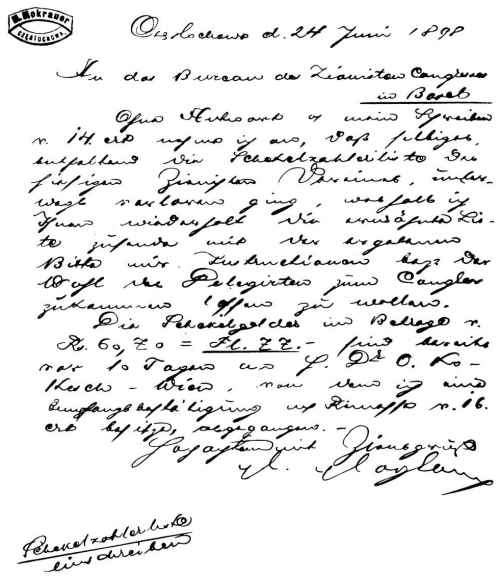 M. Mokrauer
CZĘSTOCHOWA
Czestochowa d. 24 Juni 1898
An das Bureau des Zionisten Congresses
in Basel
Ohne Antwort a mein Schreiben
v. 14. ct nehme ich an, daß selbiges,
enthaltend die Schekelzahlerliste des
hiesigen Zionisten Vereines, unter-
wegs verloren ging, weshalb ich
Ihnen wiederholt die erwähnte Lis-
te zusende mit der ergebenen
Bitte mir Instructionen bezg. der
Wahl des Delegirten zum Congress
zukommen lassen zu wollen.
Die Schekelgelder im Betrage v.
Rs. 60,70 = Fl. 77.- sind bereits
vor 10 Tagen an H. Dr. O. Ko-
kesch - Wien, von dem ich eine
Empfangsbestätigung v. 16.
ct besitze, abgegangen. -
Hochachtend mit Zionsgruß
Schekelzahlerliste
einschreiben